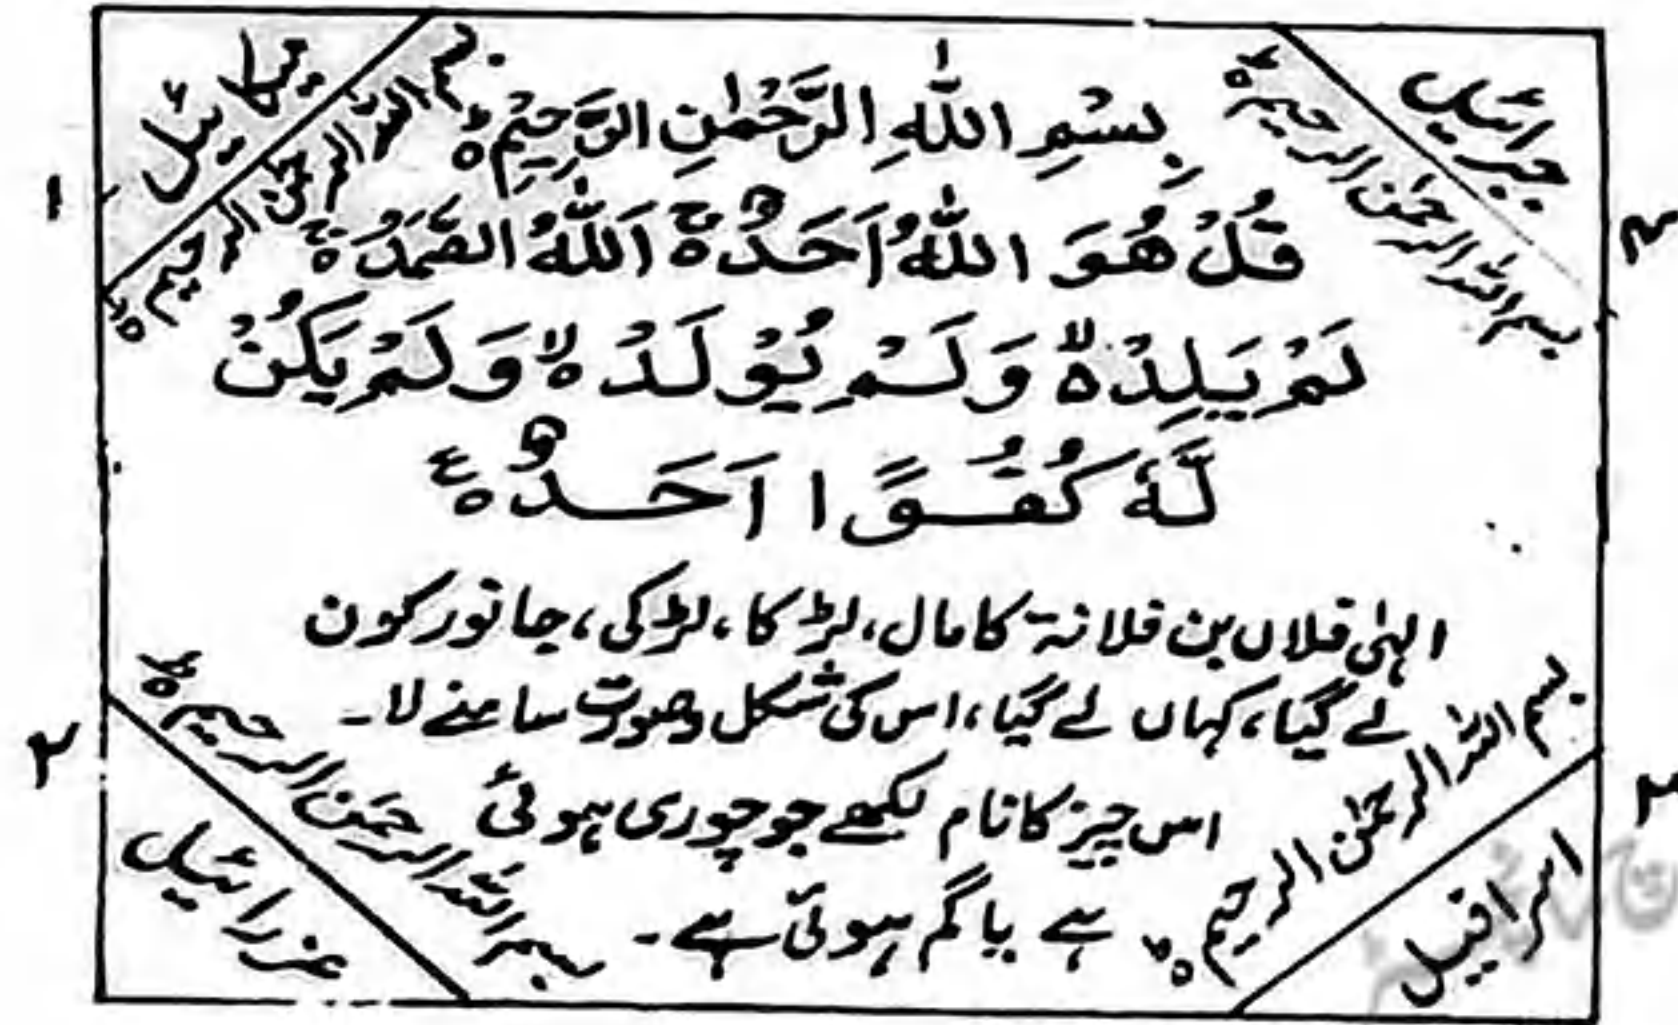 جبرائیل
میکائیل
بسم اللہ الرحمٰن الرحیم ۝
بسم اللہ الرحمٰن الرحیم ۝
بِسْمِ اللّٰهِ الرَّحْمٰنِ الرَّحِيْمِ ۝
قُلْ هُوَ اللّٰهُ اَحَدٌ ۝ۚ اَللّٰهُ الصَّمَدُ ۝ۚ
۱
لَمْ يَلِدْ ۝ۙ وَلَمْ يُوْلَدْ ۝ۙ وَلَمْ يَكُنْ
لَّهٗ كُفُوًا اَحَدٌ ۝ع
الہٰی فلاں بن فلانۃ کا مال، لڑکا، لڑکی، جانور کون
لے گیا، کہاں لے گیا، اس کی شکل وصورت سامنے لا۔
اس چیز کا نام لکھے جو چوری ہوئی
ہے یا گم ہوئی ہے۔
بسم اللہ الرحمٰن الرحیم ۝
بسم اللہ الرحمٰن الرحیم ۝
۲
اسرافیل
عزرائیل